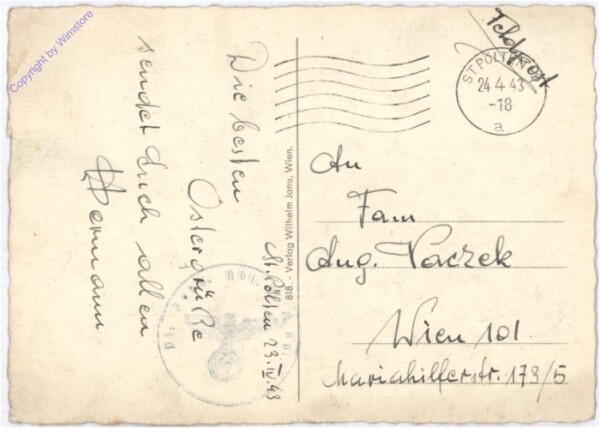 Copyright by Wimstore
Feldpost
ST. PÖLTEN
24.4.43
-18
a
St. Pölten 23. IV. 43
Die besten
Ostergrüße
sendet Euch allen
Hermann
818. - Verlag Wilhelm Jano, Wien.
An
Fam
Aug. Paczek
Wien 101.
Mariahilferstr. 173/5